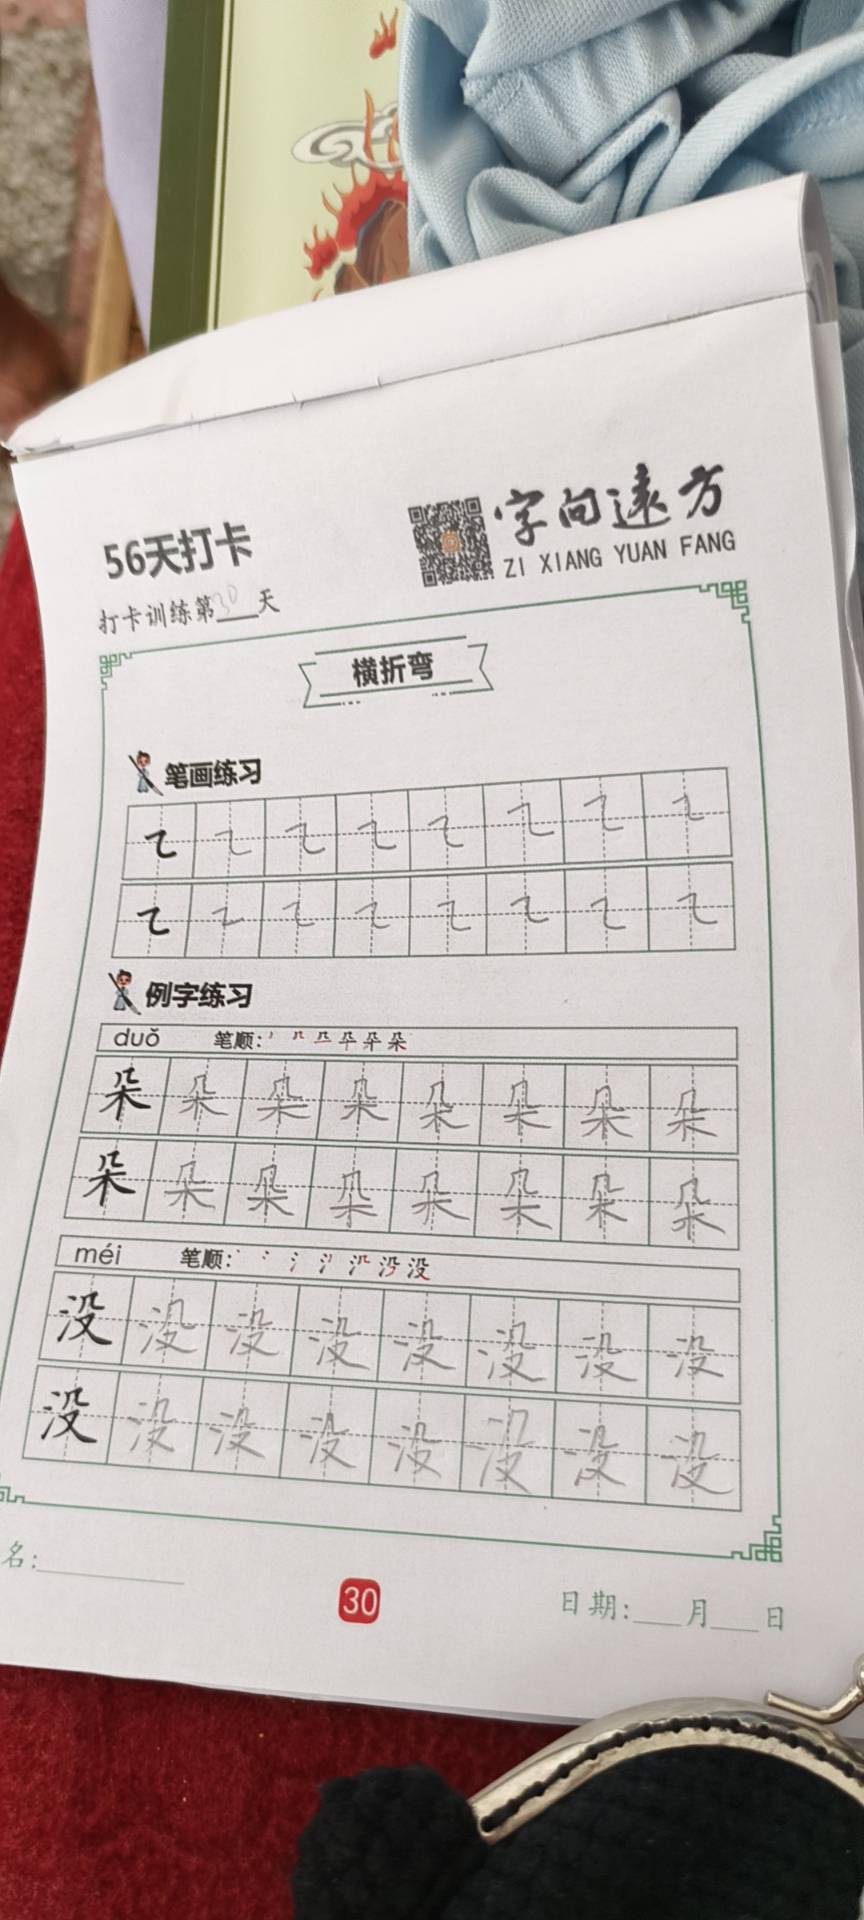 56天打卡
字向遠方
ZI XIANG YUAN FANG
打卡训练第30天
横折弯
笔画练习
㇍ ㇍ ㇍ ㇍ ㇍ ㇍ ㇍ ㇍
㇍ ㇍ ㇍ ㇍ ㇍ ㇍ ㇍ ㇍
例字练习
duǒ 笔顺: 朵
朵 朵 朵 朵 朵 朵 朵 朵
朵 朵 朵 朵 朵 朵 朵 朵
méi 笔顺: 没
没 没 没 没 没 没 没 没
没 没 没 没 没 没 没 没
名:
30
日期: 月 日